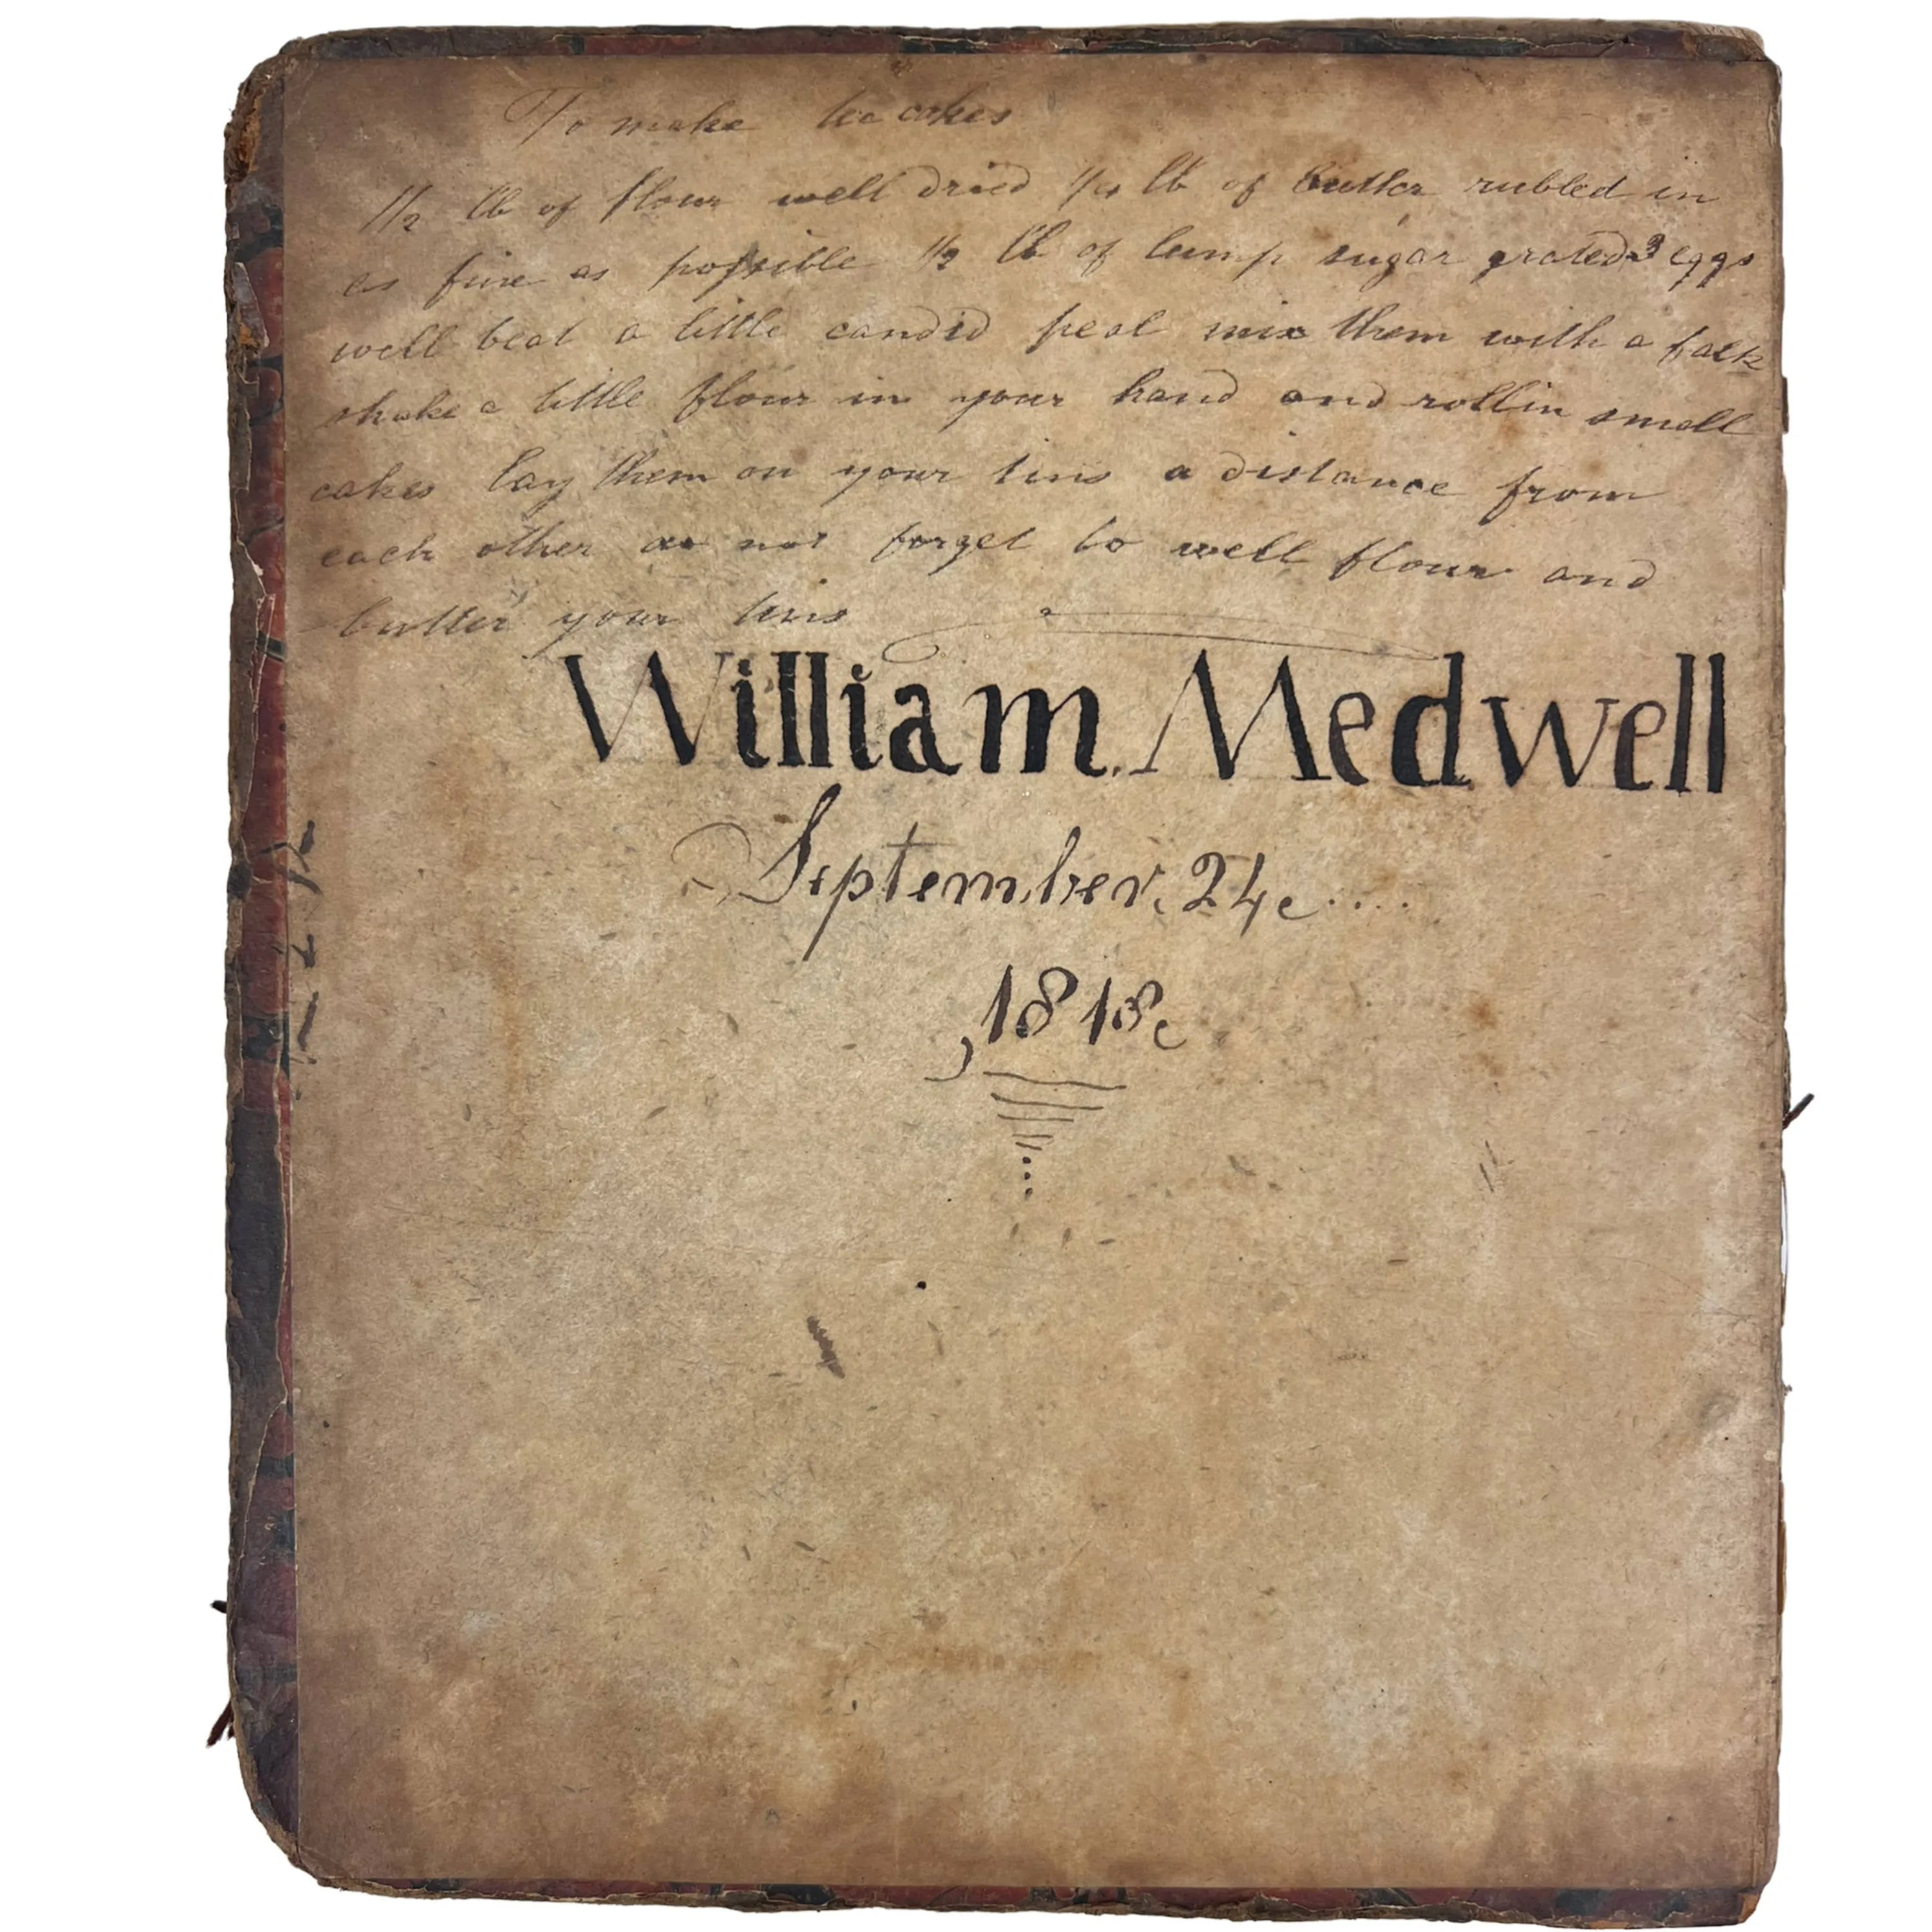 To make tea cakes
1/2 lb of flour well dried 1/4 lb of butter rubbed in
as fine as possible 1/2 lb of lump sugar grated 3 eggs
well beat a little candid peal mix them with a
shake a little flour in your hand and roll in small
cakes lay them on your tins a distance from
each other do not forget to well flour and
butter your tins
William. Medwell
September, 24
1818